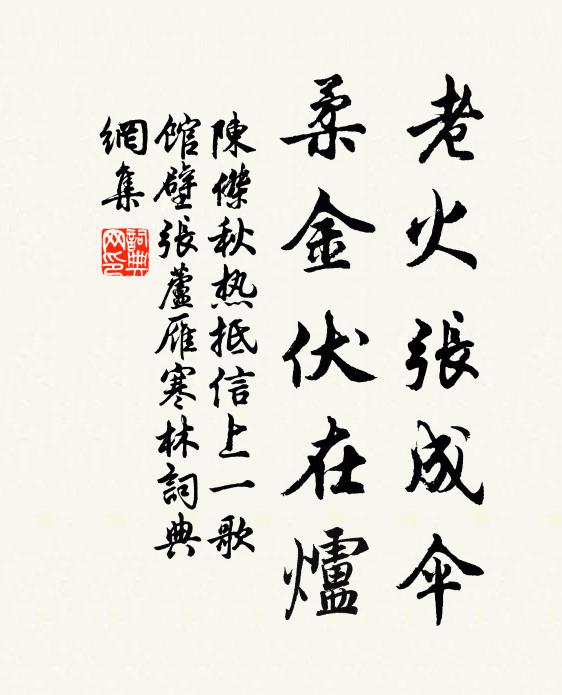 老火張成傘
柔金伏在爐
陳傑秋热抵信上一歌
館壁張蘆雁寒林詞典
網集
詞典
网印